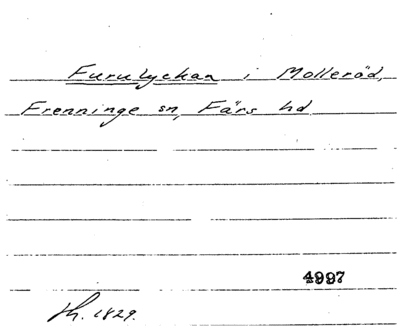 Furulyckan i Molleröd,
Frenninge sn, Färs hd
4997
fh. 1829.